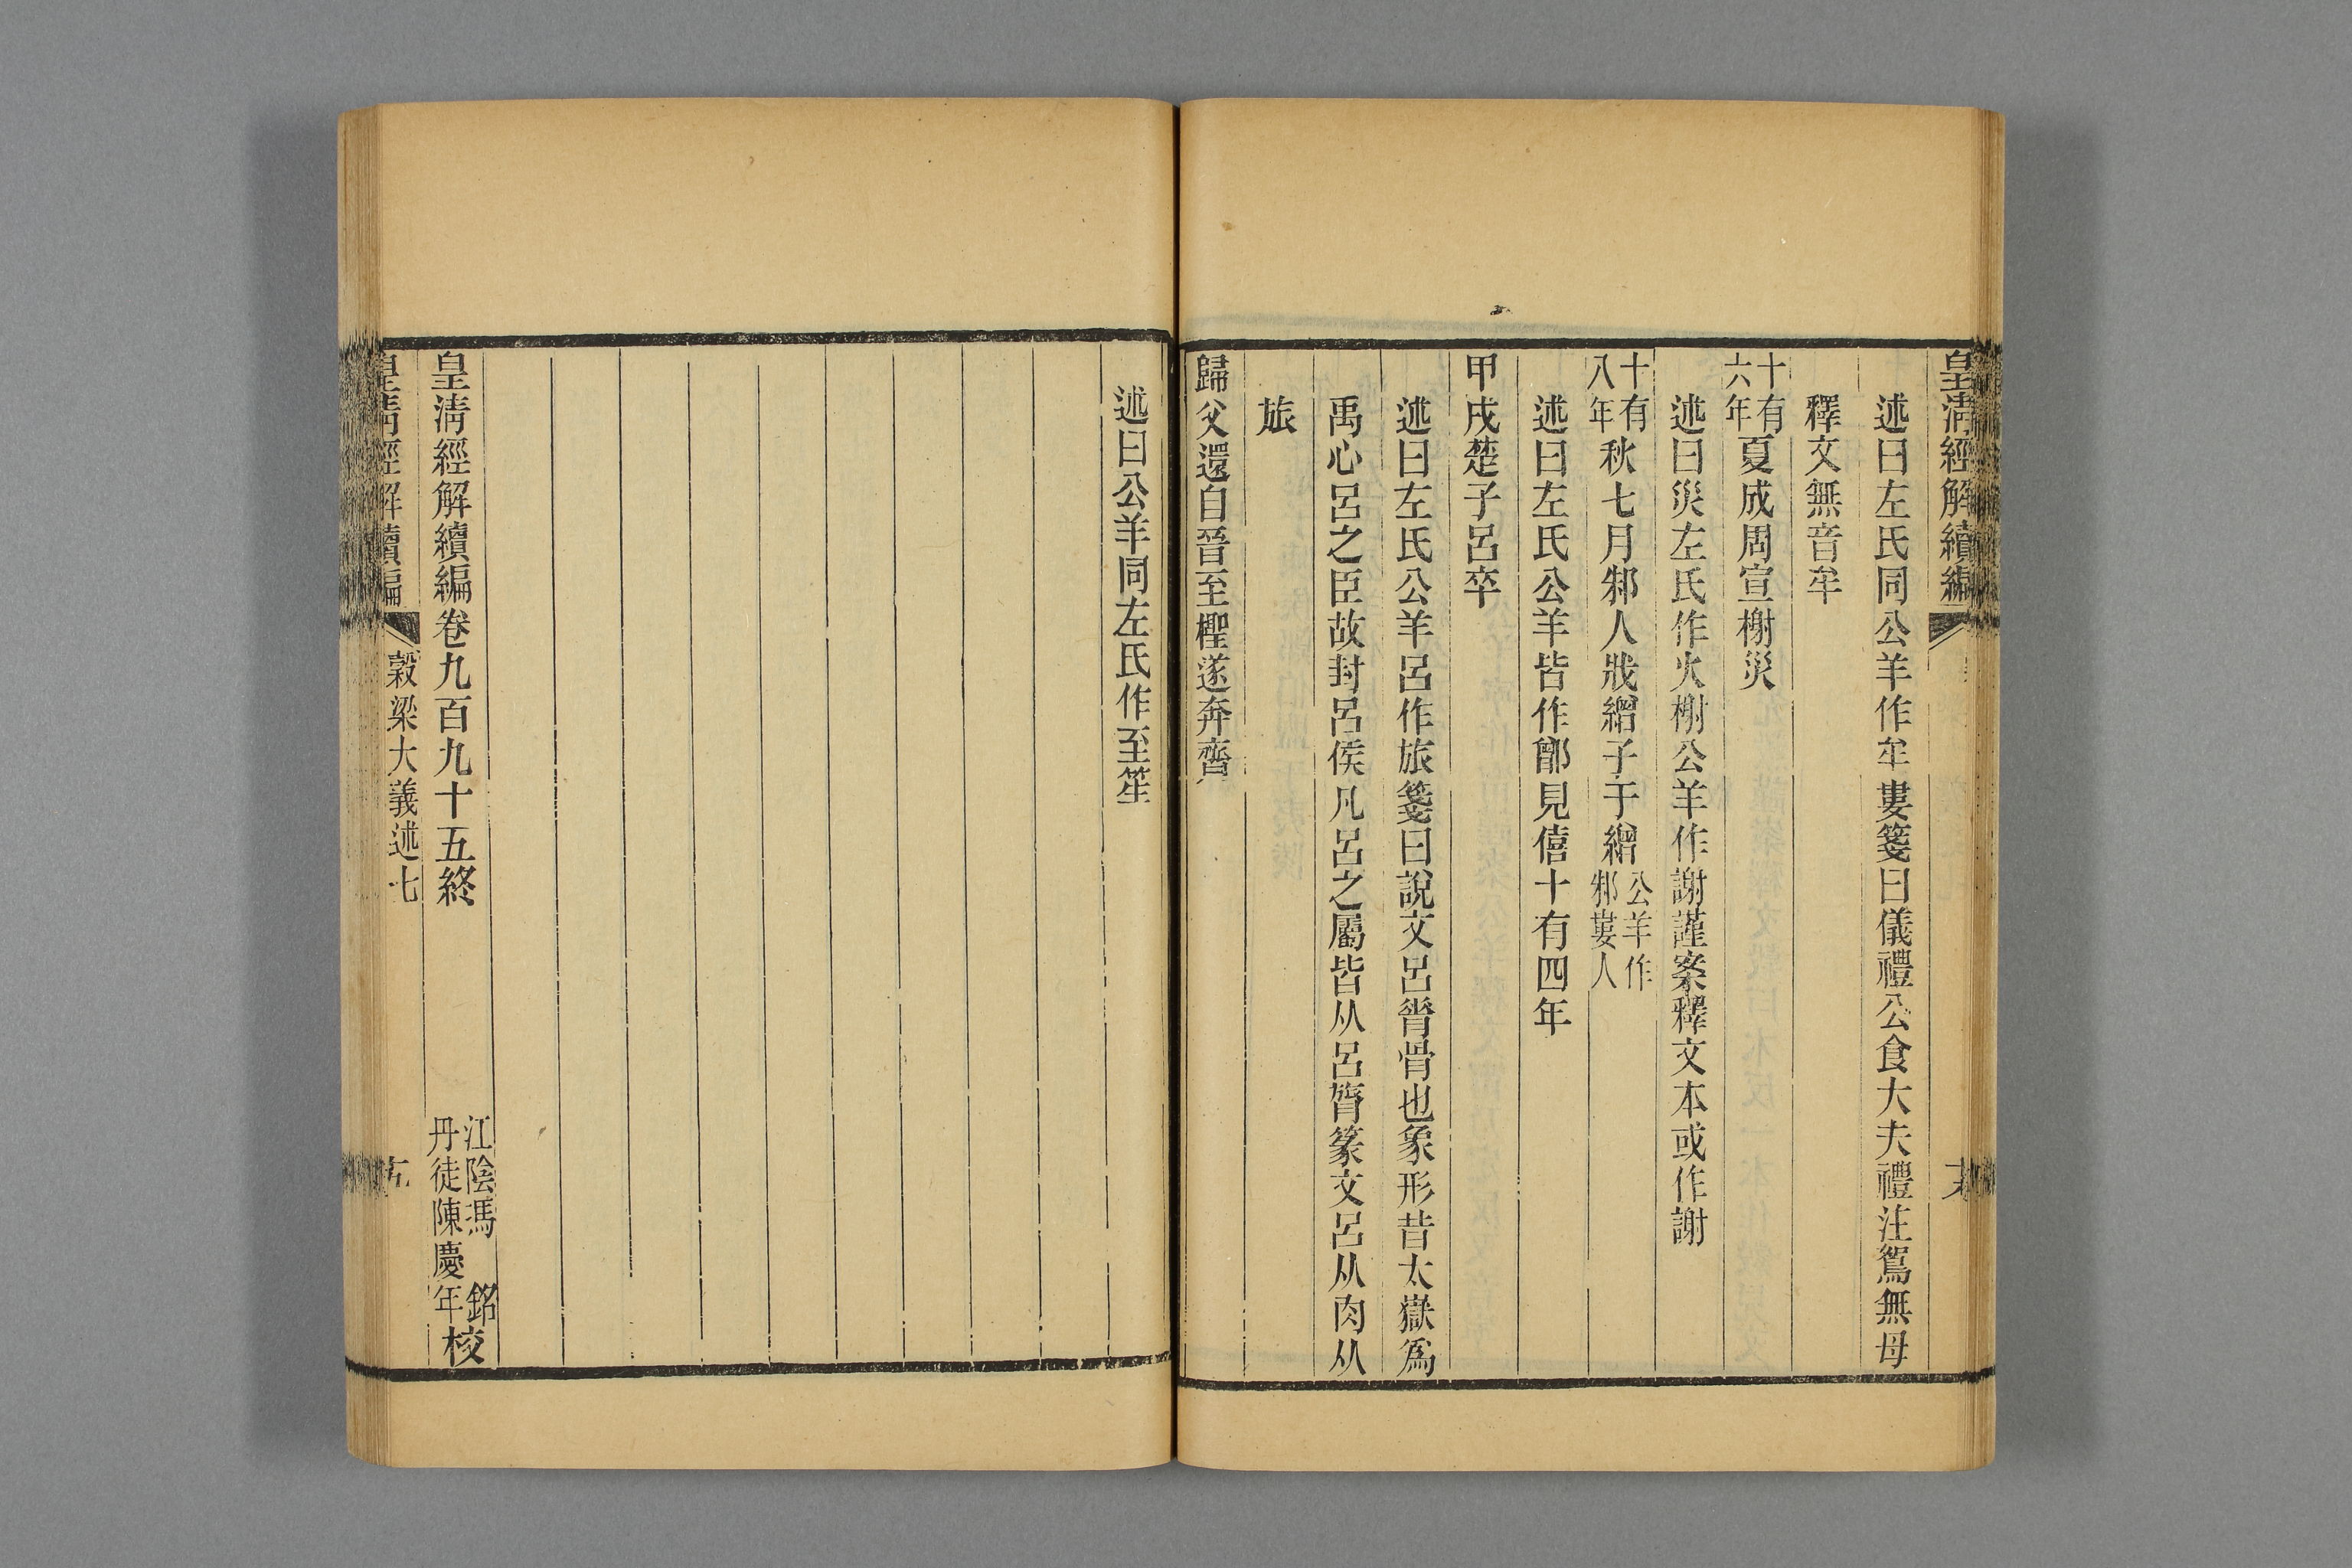 皇清經解續編
述曰左氏同公羊作牟婁箋曰儀禮公食大夫禮注鴐無母
釋文無音牟
十有六年夏成周宣榭災
述曰災左氏作火榭公羊作謝謹案釋文本或作謝
十有八年秋七月邾人戕繒子于繒公羊作邾婁人
述曰左氏公羊皆作鄫見僖十有四年
甲戌楚子呂卒
述曰左氏公羊呂作旅箋曰說文呂脊骨也象形昔太嶽為
禹心呂之臣故封呂侯凡呂之屬皆从呂膂篆文呂从肉从
旅
歸父還自晉至檉遂奔齊
述曰公羊同左氏作至笙
皇清經解續編卷九百九十五終
江陰馮銘
丹徒陳慶年校
皇清經解續編 穀梁大義述七